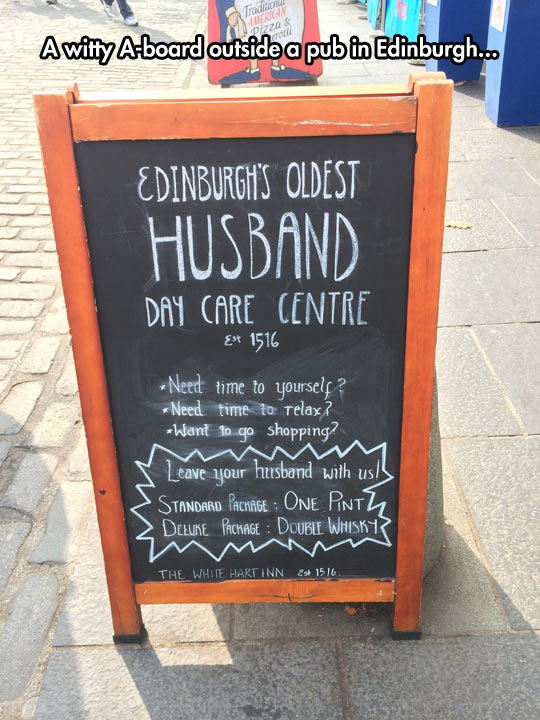 Traditional
AMERICAN
Pizza &
A witty A-board outside a pub in Edinburgh...
EDINBURGH'S OLDEST
HUSBAND
DAY CARE CENTRE
Est 1516
*Need time to yourself?
*Need time to relax?
*Want to go shopping?
Leave your husband with us!
STANDARD PACKAGE : ONE PINT
DELUXE PACKAGE : DOUBLE WHISKY
THE WHITE HART INN Est 1516.